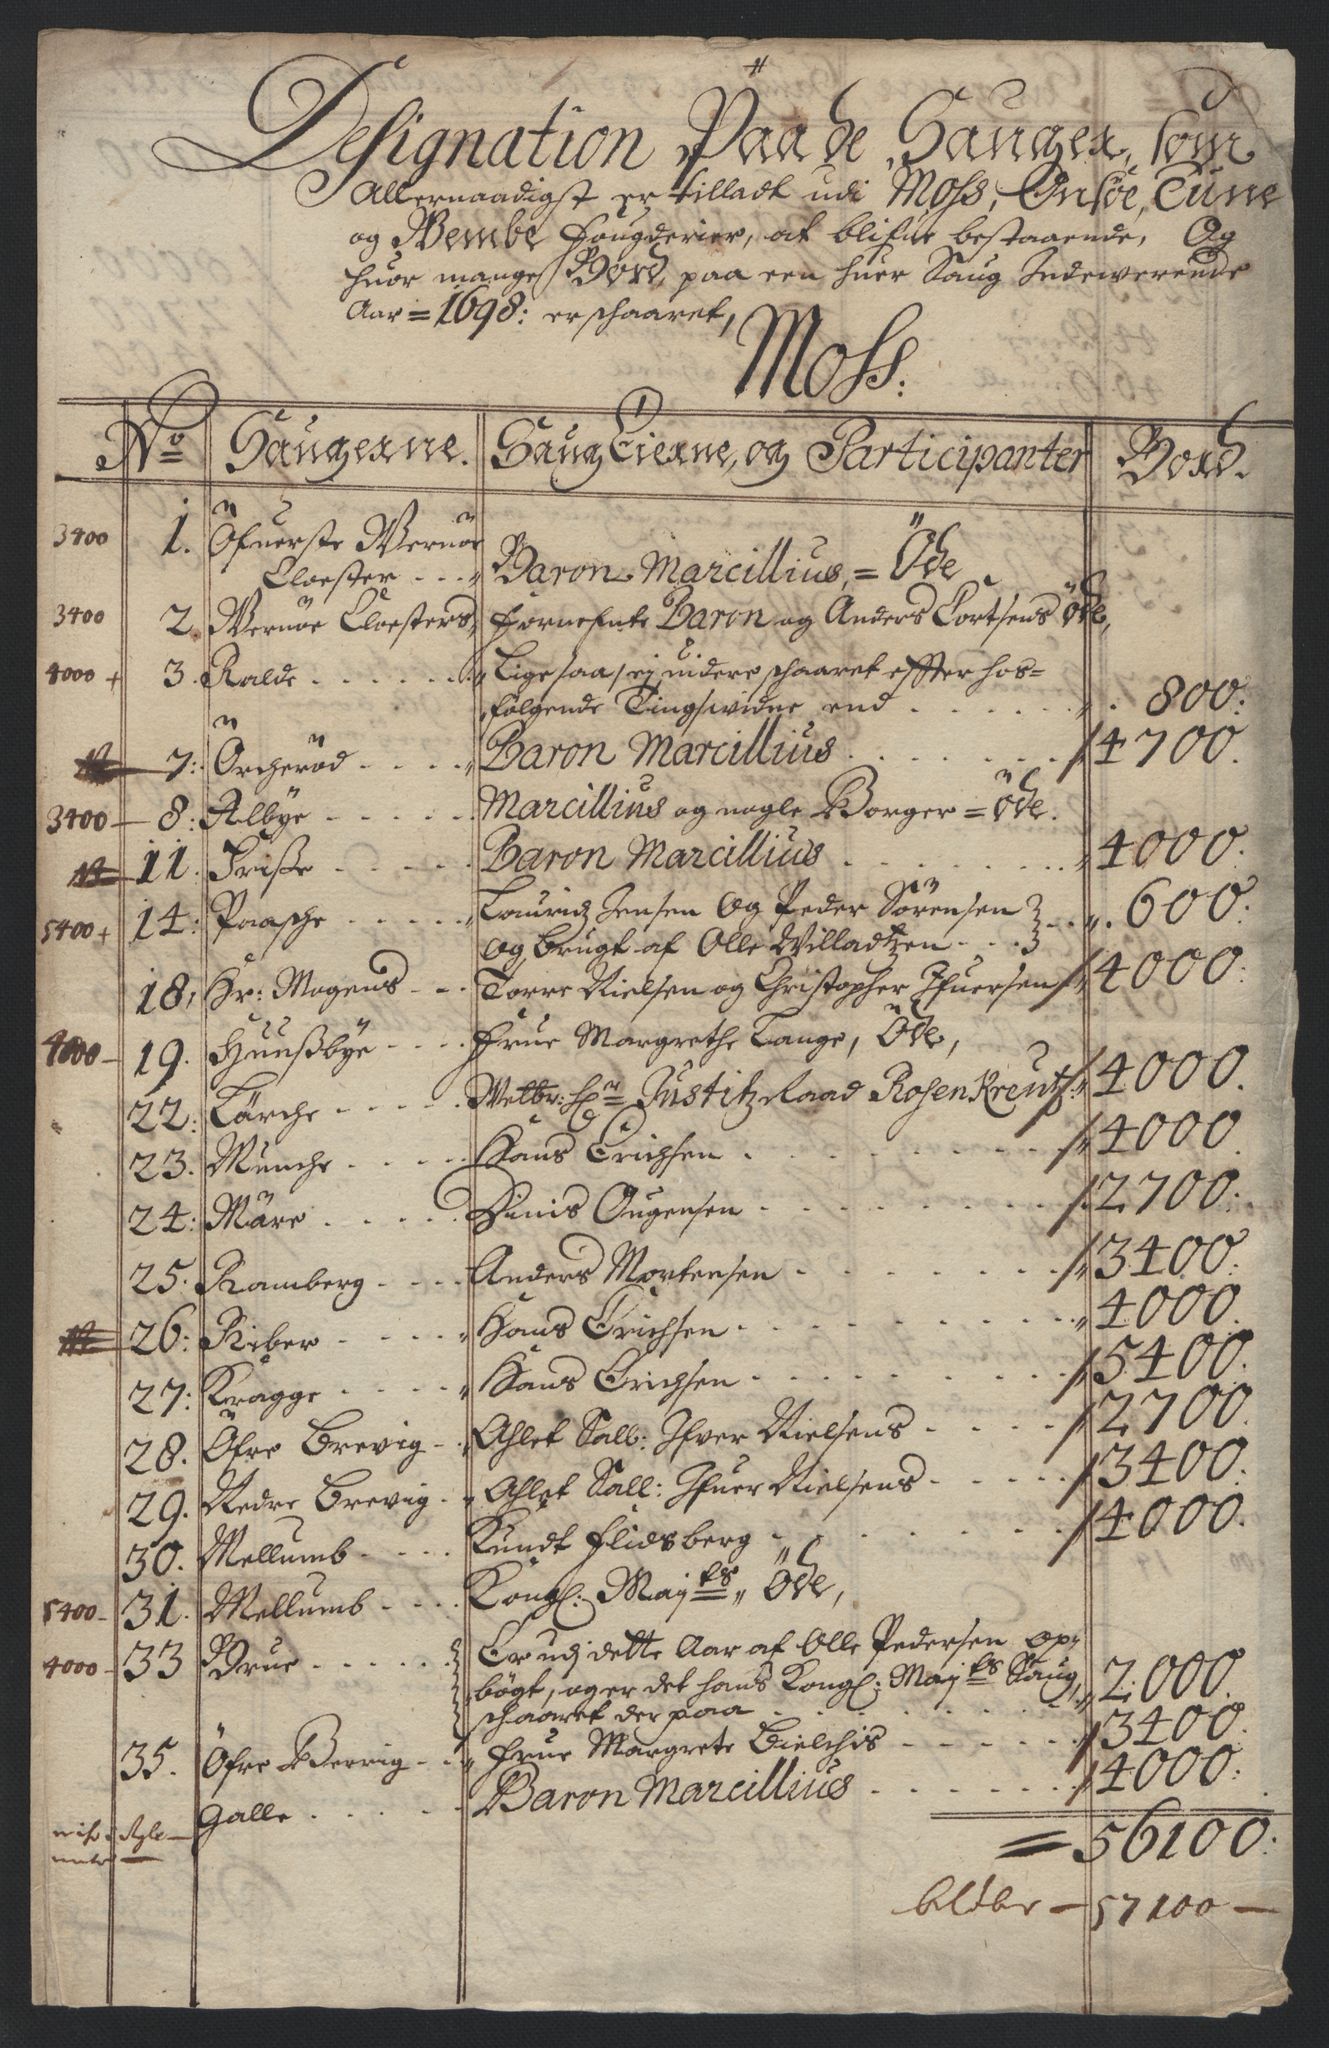 Designation Paa de Sauger, som
Allernaadigst er tilladt udi Moss, Onsöe, Tune
og Wembe Fougderier, at blifve bestaaende, Og
huor mange Bord, paa een huer Saug Indewerende
Aar = 1698: er schaaret,
Moss:
No Saugerne. Saug Eierne, og Participanter Bord.
3400 1. Öfuerste Wernöe
Cloester Baron Marcillius, = Öde
3400 2. Wernöe Cloesters fornefnte Baron og Anders Cortsens Öde,
4000 + 3. Ralde Lige saa, ej uidere schaaret effter hos=
fölgende Tingswidne end 800:
7: Örcheröd Baron Marcillius 4700.
3400 8: Albye Marcillius og nogle Borger = öde.
11. Trisse Baron Marcillius 4000:
5400 + 14: Paasche Lauridz Jensen Og Peder Sörensen
og brugt af Olle Willadtzen 600:
18, Hr: Mogens Torre Nielsen og Christopher Ifuersen 4000:
4000 19. Huusbye Frue Margrethe Lange, Öde,
22: Lärche Welbr: Hr Justitz Raad RosenKreutz 4000.
23. Munche Hans Erichsen 4000
24: Märe Dinis Ougensen 2700:
25. Ramberg Anders Mortensen 3400:
26: Riber Hans Erichsen 4000.
27: Kragge Hans Erichsen 5400.
28. Öfre Brevig Ahlet Sall: Ifver Nielsens 2700.
29. Nedre Brevig Ahlet Sall: Ifuer Nielsens 3400:
30. Mellumb Knudt Flidsberg 4000.
5400 31. Mellumb Kongl: Mayts Öde,
4000 33 Brue Er udj dette Aar af Olle Pedersen op=
bögt, og er det hans Kongl: Mayts Saug,
schaaret der paa 2000.
35. Öfre Berrig Frue Margrete Bielchis 3400:
Galle Baron Marcillius 4000:
= 56100:
57100